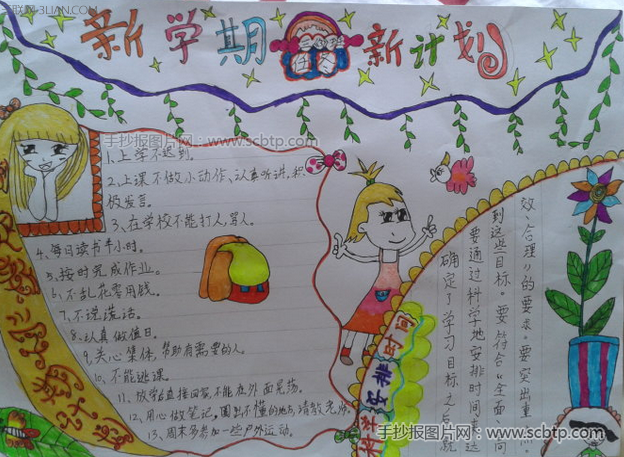 联网-3LIAN.COM
新学期 新计划
手抄报图片网：www.scbtp.com
1、上学不迟到。
2、上课不做小动作、认真听讲，积
极发言。
3、在学校不能打人，骂人。
4、每日读书半小时。
5、按时完成作业。
6、不乱花零用钱。
7、不说谎话。
8、认真做值日。
9、关心集体，帮助有需要的人。
10、不能逃课。
11、放学后直接回家，不能在外面晃荡。
12、用心做笔记，圈出不懂的地方，请教老师。
13、周末多参加一些户外运动。
科学安排时间
确定了学习目标之后，就
要通过科学地安排时间来达
到这些目标。要符合“全面、高
效、合理”的要求。要突出重
手抄报图片网：www.scbtp.com